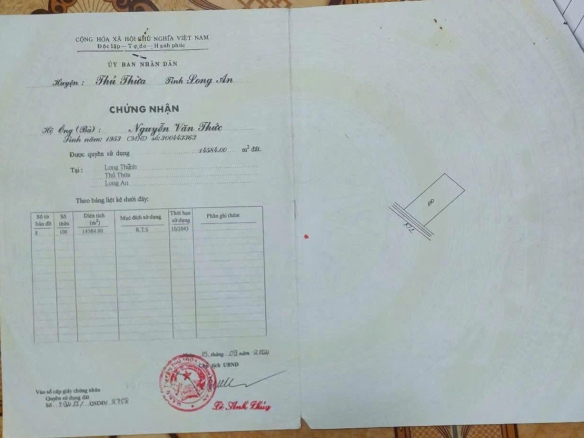 CỘNG HÒA XÃ HỘI CHỦ NGHĨA VIỆT NAM
Độc lập - Tự do - Hạnh phúc
ỦY BAN NHÂN DÂN
Huyện : Thủ Thừa Tỉnh Long An
CHỨNG NHẬN
Hộ Ông (Bà) : Nguyễn Văn Thức
Sinh năm: 1953 CMND số:300443363
Được quyền sử dụng 14584.00 m² đất.
Tại : Long Thạnh
Thủ Thừa
Long An
Theo bảng liệt kê dưới đây:
Số tờ bản đồ
Số thửa
Diện tích (m²)
Mục đích sử dụng
Thời hạn sử dụng
Phần ghi thêm
14584.00
R.T.S
Ngày tháng năm
Chủ tịch UBND
Vào sổ cấp giấy chứng nhận
Quyền sử dụng đất
Số QSDĐ/
Lê Anh Thúy